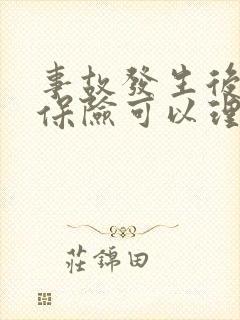 事故發生後
保險可以理
莊錦田